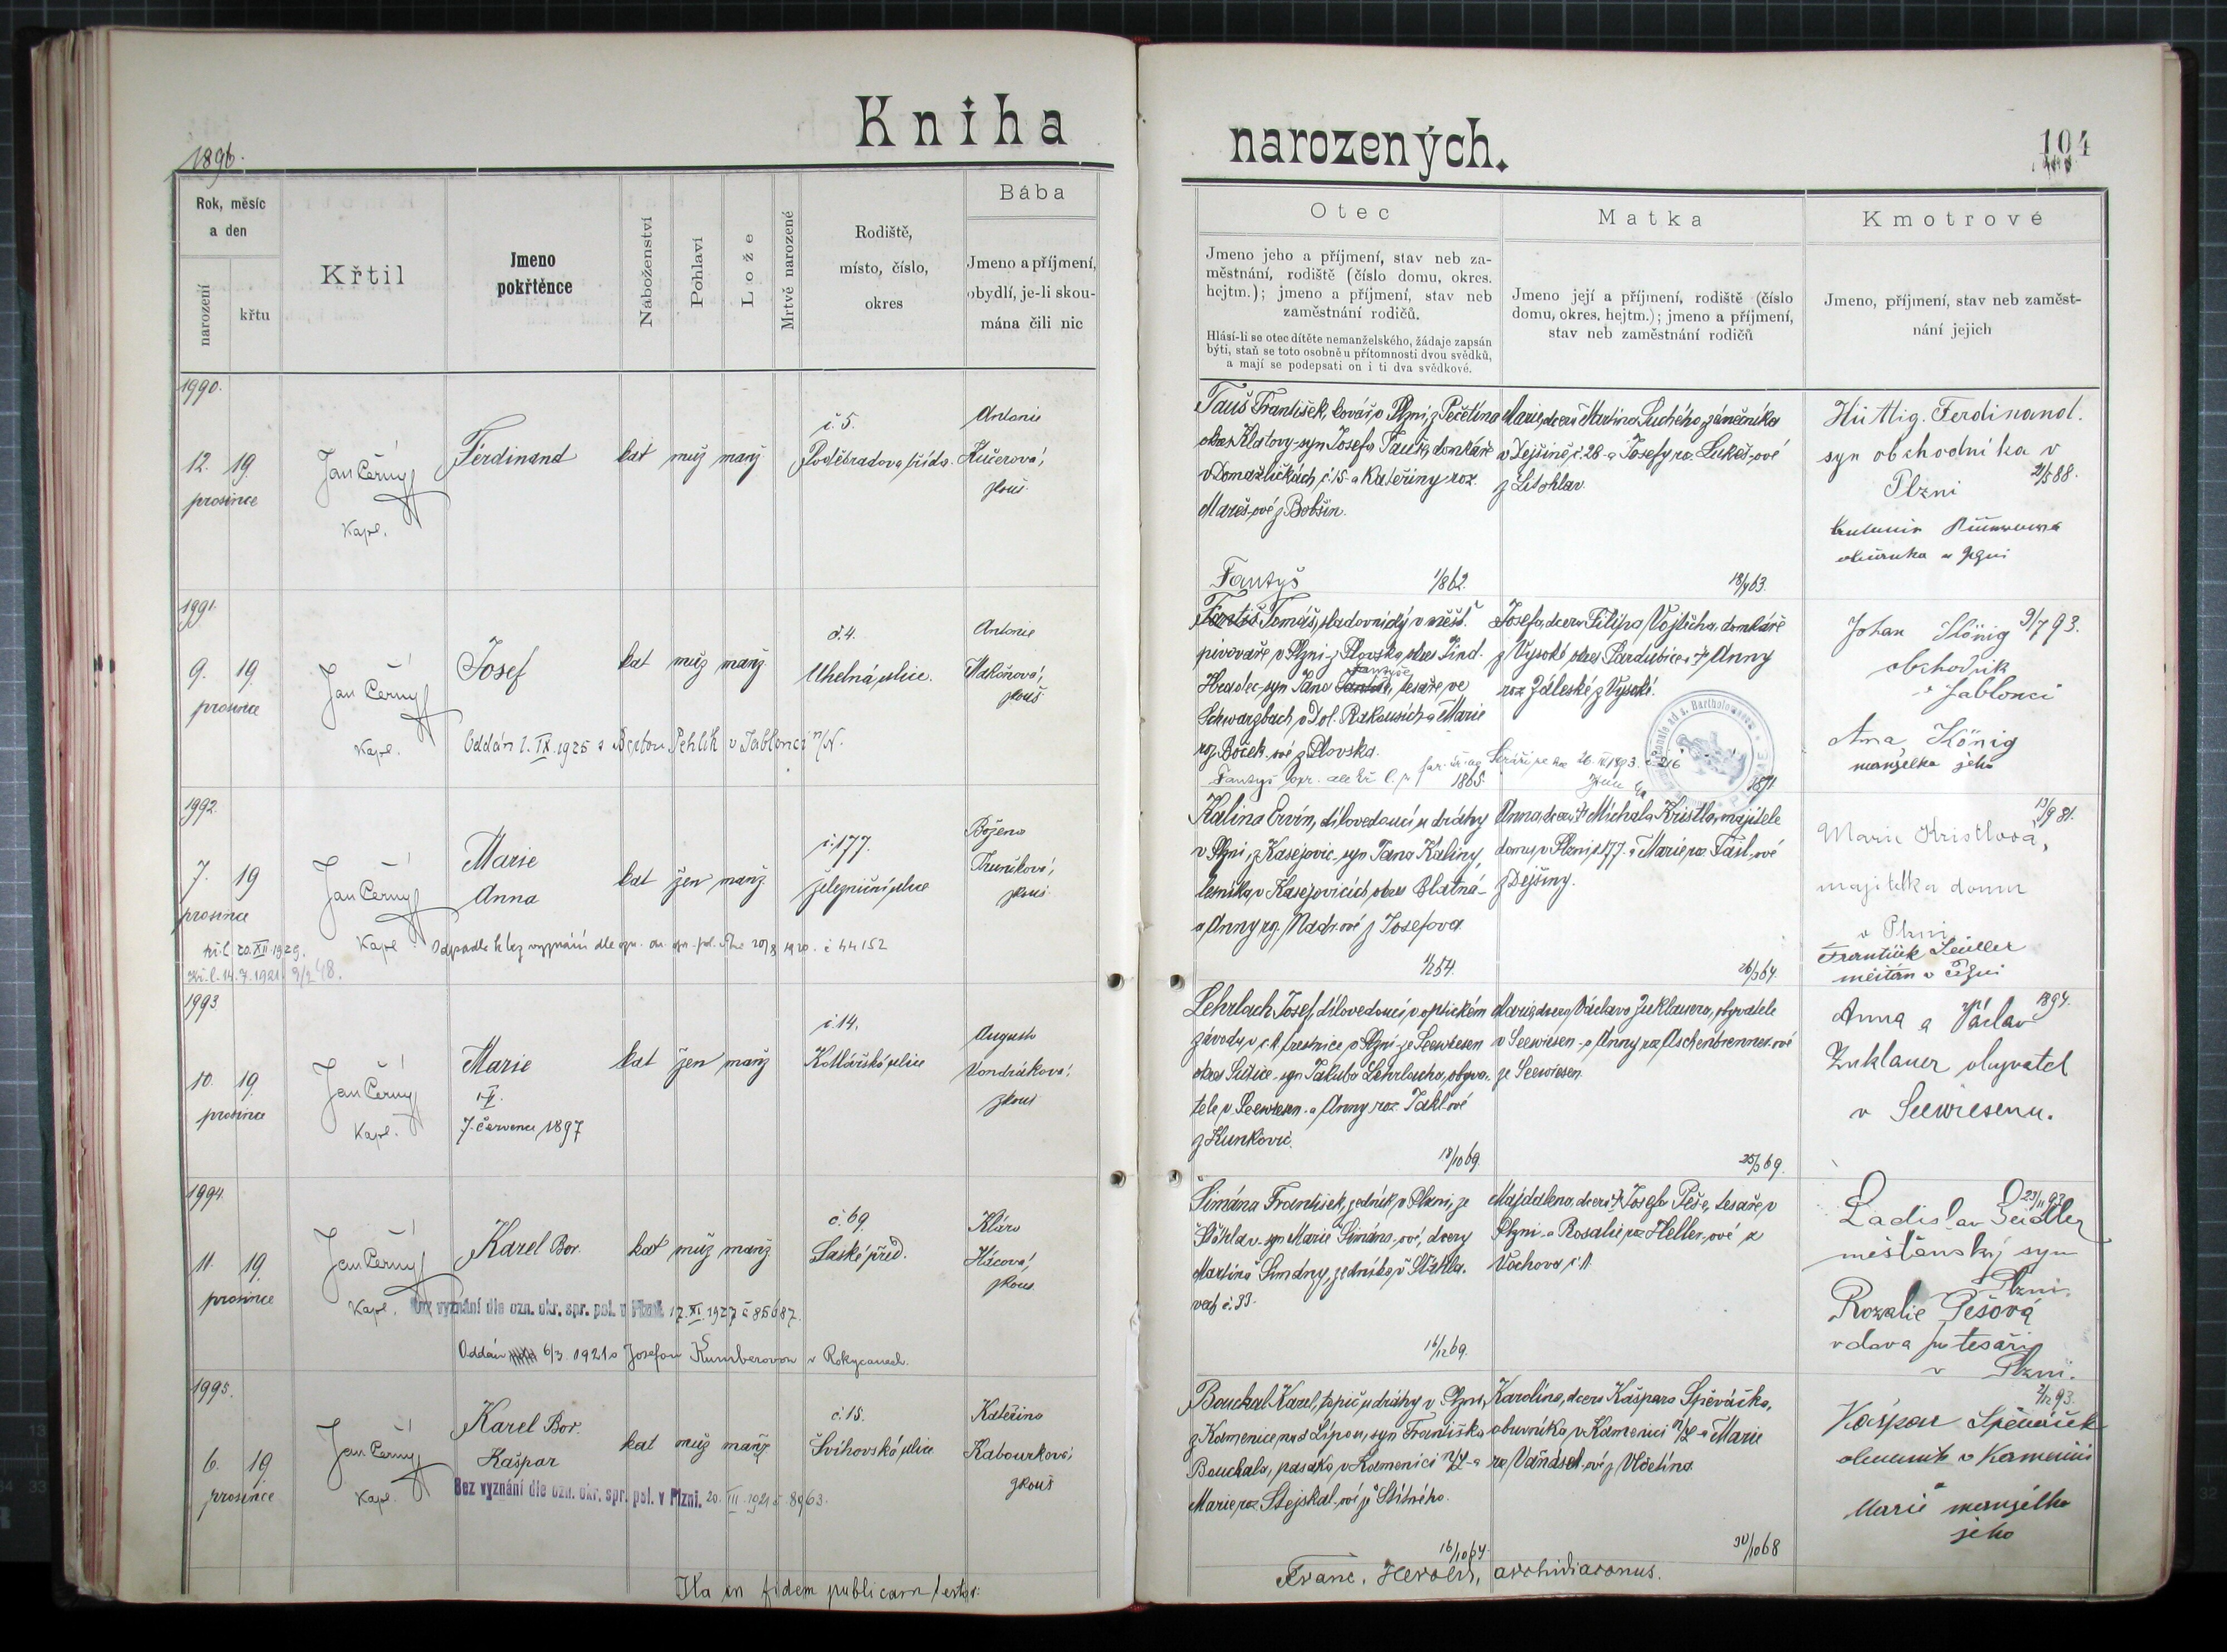 Kniha
narozených.
1896.
104
Rok, měsíc
a den
narození
křtu
Křtil
Jmeno
pokřtěnce
Náboženství
Pohlaví
Lože
Mrtvě narozené
Rodiště,
místo, číslo,
okres
Bába
Jmeno a příjmení,
obydlí, je-li skou-
mána čili nic
Otec
Jmeno jeho a příjmení, stav neb za-
městnání, rodiště (číslo domu, okres.
hejtm.); jmeno a příjmení, stav neb
zaměstnání rodičů.
Hlásí-li se otec dítěte nemanželského, žádaje zapsán
býti, staň se toto osobně u přítomnosti dvou svědků,
a mají se podepsati on i ti dva svědkové.
Matka
Jmeno její a příjmení, rodiště (číslo
domu, okres, hejtm.); jmeno a příjmení,
stav neb zaměstnání rodičů
Kmotrové
Jmeno, příjmení, stav neb zaměst-
nání jejich
1990.
12. 19.
prosince
Jan Černý
Kapl.
Ferdinand
kat muž manž
č. 5.
Poděbradova třída.
Antonie
Kučerová,
zkouš.
Tauš František, kovář v Plzni, z Pečetína
okres Klatovy - syn Josefa Tauše, domkáře
v Domažličkách, č. 15 - a Kateřiny roz.
Mareš-ové z Bobšin.
1/8 62.
Marie, dcera Martina Suchého, zámečníka
v Dejšině, č. 28 - a Josefy roz. Lukeš-ové
z Litohlav.
18/7 63.
Hüttig. Ferdinand.
syn obchodníka v
Plzni
21/5 88.
1991.
9. 19.
prosince
Jan Černý
Kapl.
Josef
kat muž manž.
č. 4.
Uhelná ulice.
Antonie
Maškonová,
zkouš
Oddán 2. IX. 1925 s Bertou Pehlík v Jablonci n/N.
Fantyš
Fantiš Tomáš, sladovnický v měšť.
pivováře v Plzni - z Plovska, okres Jind.
Hradec - syn Jana Fantiše, tesaře ve
Schwarzbach v Dol. Rakousích a Marie
roz. Boček-ové z Plovska.
1865.
Josefa, dcera Filipa Vojtěcha, domkáře
z Vysoké okres Pardubice a † Anny
roz. Záleské z Vysoké.
1871
Johan König 9/7 93.
obchodník
v Jablonci
Anna König
manželka jeho
1992.
7. 19
prosince
Jan Černý
Kapl.
Marie
Anna
kat žen manž.
č. 177.
železniční ulice
Božena
Trunečková,
zkouš
kř. l. 20. XII. 1929.
kř. l. 14. 7. 1921. 9/2 48.
Odpadla k bez vyznání dle ozn. okr. spr. pol. Plz. 20/8 1920. č 44152
Kalina Ervín, dílovedoucí u dráhy
v Plzni, z Kasejovic - syn Jana Kaliny,
lesníka v Kasejovicích, okres Blatná -
a Anny roz. Nadr-ové z Josefova.
1/2 54.
Anna, dcera † Michala Kristla, majitele
domu v Plzni č 177. a Marie roz. Tašl-ové
z Dejšiny.
26/3 64.
13/9 81.
Marie Kristlová,
majitelka domu
v Plzni
František Seidler
měštan v Plzni
1993.
10. 19.
prosince
Jan Černý
Kapl.
Marie
7. července 1897
kat žen manž
č. 14.
Kotlářská ulice
Augusta
Vondráková,
zkouš
Lehrlach Josef, dílovedoucí v optickém
závodu v c. k. trestnice v Plzni - ze Seewiesen
okres Sušice - syn Jakuba Lehrlacha, obyva-
tele v Seewiesen - a Anny roz. Jakl-ové
z Kunkovic.
18/10 69.
Marie, dcera Václava Zuklauera, obyvatele
v Seewiesen - a Anny roz. Aschenbrenner-ové
ze Seewiesen
25/3 69.
1894.
Anna a Václav
Zuklauer obyvatel
v Seewiesenu.
1994.
11. 19.
prosince
Jan Černý
Kapl.
Karel Bor.
kat muž manž
č. 69.
Saské před.
Klára
Hácová,
zkouš
Bez vyznání dle ozn. okr. spr. pol. v Plzni 17. XI. 1927 č 85687.
Oddán 6/3. 1921 s Josefou Kumberovou v Rokycanech.
Šimána František, zedník v Plzni, ze
Šťáhlav - syn Marie Šimána-ové, dcery
Martina Šimány, zedníka v Šťáhla-
vech č. 33.
16/12 69.
Majdalena, dcera † Josefa Peše, tesaře v
Plzni - a Rosalie roz. Heller-ové z
Vochova, č. 1.
23/11 93
Ladislav Seidler
měšťanský syn
Plzni.
Rozalie Pešová
vdova po tesaři
v Plzni.
1995.
6. 19.
prosince
Jan Černý
Kapl.
Karel Bor.
Kašpar
kat muž manž
č. 15.
Švihovská ulice
Kateřina
Kabourková,
zkouš
Bez vyznání dle ozn. okr. spr. pol. v Plzni. 20. III. 1921 č. 8963.
Bouchal Karel, topič u dráhy v Plzni,
z Kamenice nad Lípou, syn Františka
Bouchala, pasáka v Kamenici n/L - a
Marie roz. Stejskal-ové ze Štítného.
16/10 64.
Karolina, dcera Kašpara Spěváčka,
obuvníka v Kamenici n/L - a Marie
roz. Vaňásek-ové z Včelína.
30/10 68
2/12 93.
Kašpar Spěváček
obuvník v Kamenici
Marie manželka
jeho
Ita in fidem publicam testor:
Franc. Herold, archidiaconus.